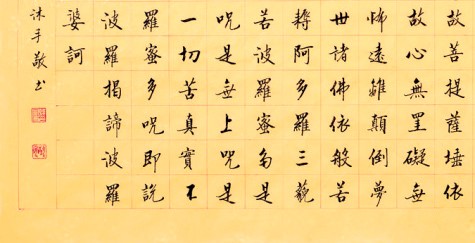 故菩提薩埵依
故心無罣礙無
怖遠離顛倒夢
世諸佛依般若
耨阿多羅三藐
若波羅蜜多是
呪是無上呪是
一切苦真實不
羅蜜多呪即說
波羅揭諦波羅
婆訶
沐手敬书